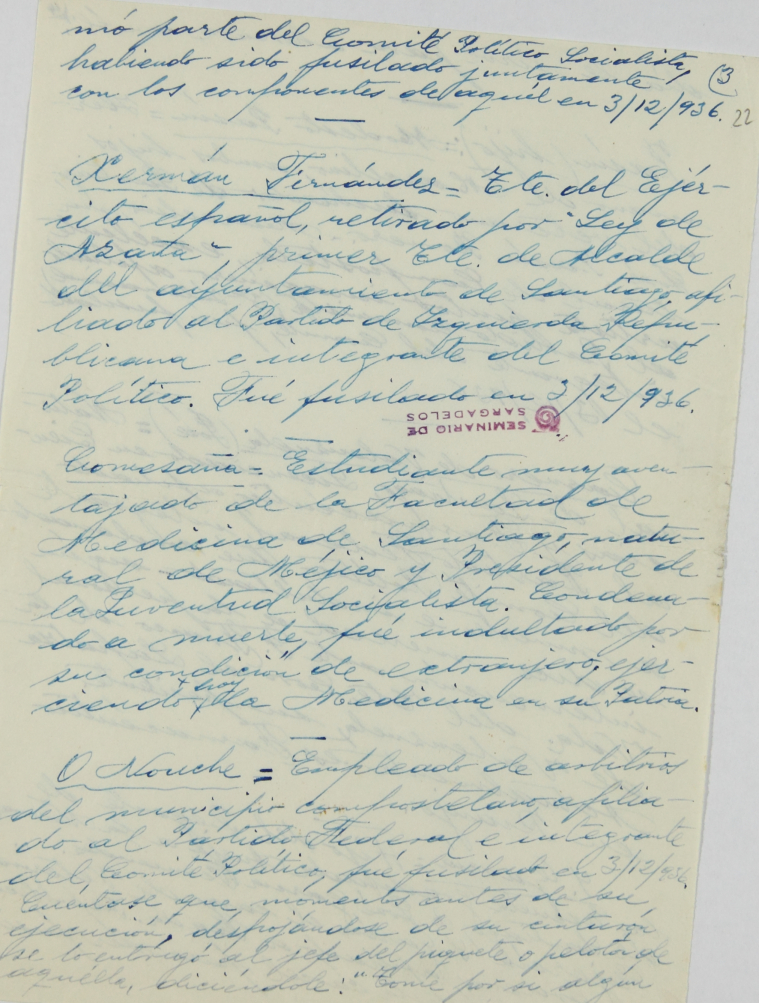 mó parte del Comité Político Socialista,
habiendo sido fusilado juntamente
con los componentes de aquél en 3/12/936.
(3
22
Xermán Fernández = Tte. del Ejér-
cito español, retirado por "Ley de
Azaña", primer Tte. de Alcalde
del ayuntamiento de Santiago, afi-
liado al Partido de Izquierda Repu-
blicana e integrante del Comité
Político. Fué fusilado en 3/12/936.
SEMINARIO DE
SARGADELOS
Comesaña = Estudiante muy aven-
tajado de la Facultad de
Medicina de Santiago, natu-
ral de Méjico y Presidente de
la Juventud Socialista. Condena-
do a muerte, fué indultado por
su condición de extranjero, ejer-
ciendo hoy la Medicina en su Patria.
O Nouche = Empleado de arbitrios
del municipio compostelano, afilia-
do al Partido Federal e integrante
del Comité Político, fué fusilado en 3/12/936.
Cuéntase que, momentos antes de su
ejecución, despojándose de su cinturón
se lo entregó al jefe del piquete o pelotón de
aquélla, diciéndole: "Tome por si algún